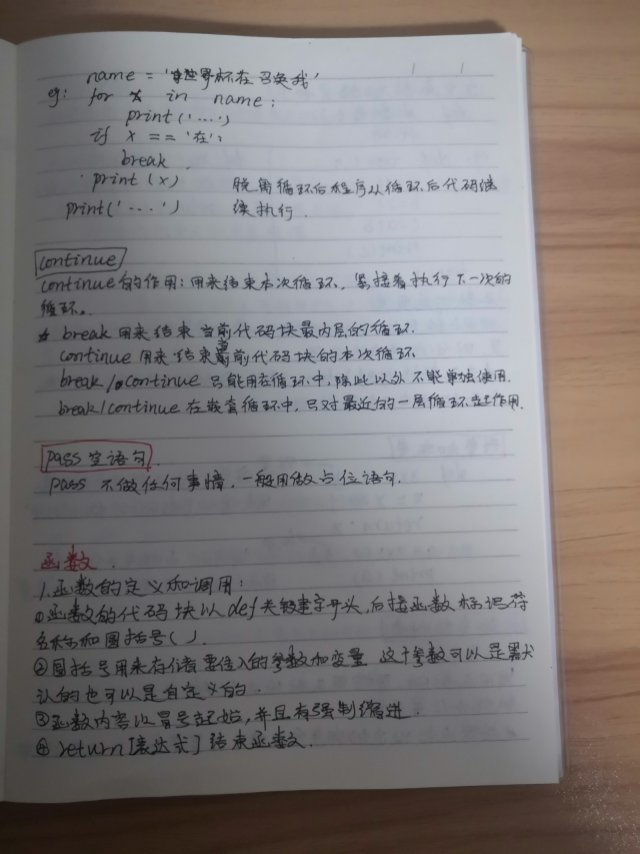 name = '世界杯在召唤我'
eg: for x in name:
print('....')
if x == '在':
break
print(x) 脱离循环后程序从循环后代码继
print('....') 续执行.
continue
continue的作用: 用来结束本次循环, 紧接着执行下一次的
循环。
☆ break 用来结束当前代码块最内层的循环.
continue 用来结束当前代码块的本次循环.
break/continue 只能用在循环中, 除此以外不能单独使用.
break/continue 在嵌套循环中, 只对最近的一层循环起作用.
pass 空语句.
pass 不做任何事情, 一般用做占位语句.
函数.
1.函数的定义和调用:
①函数的代码块以def关键字开头, 后接函数标识符
名称和圆括号().
②圆括号用来存储要传入的参数和变量 这个参数可以是默
认的也可以是自定义的.
③函数内容以冒号起始, 并且有强制缩进.
④return [表达式] 结束函数.